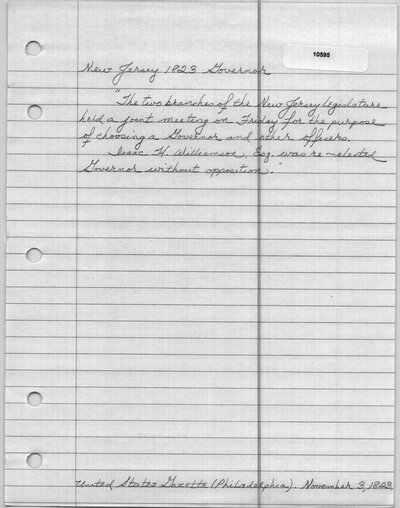 10595
New Jersey 1823 Governor
"The two branches of the New Jersey Legislature
held a joint meeting on Friday for the purpose
of choosing a Governor and other officers.
Isaac H. Williamson, Esq. was re-elected
Governor without opposition."
United States Gazette (Philadelphia). November 3, 1823